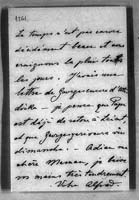 1261.
Le temps n'est pas encore
décidément beau et nous
craignons la pluie tous
les jours. J'avais une
lettre de
je pense que
est déjà de retour à
et que
dimanche. Adieu ma
chère Maman, je baise
vos mains très tendrement.
Votre Alfred.